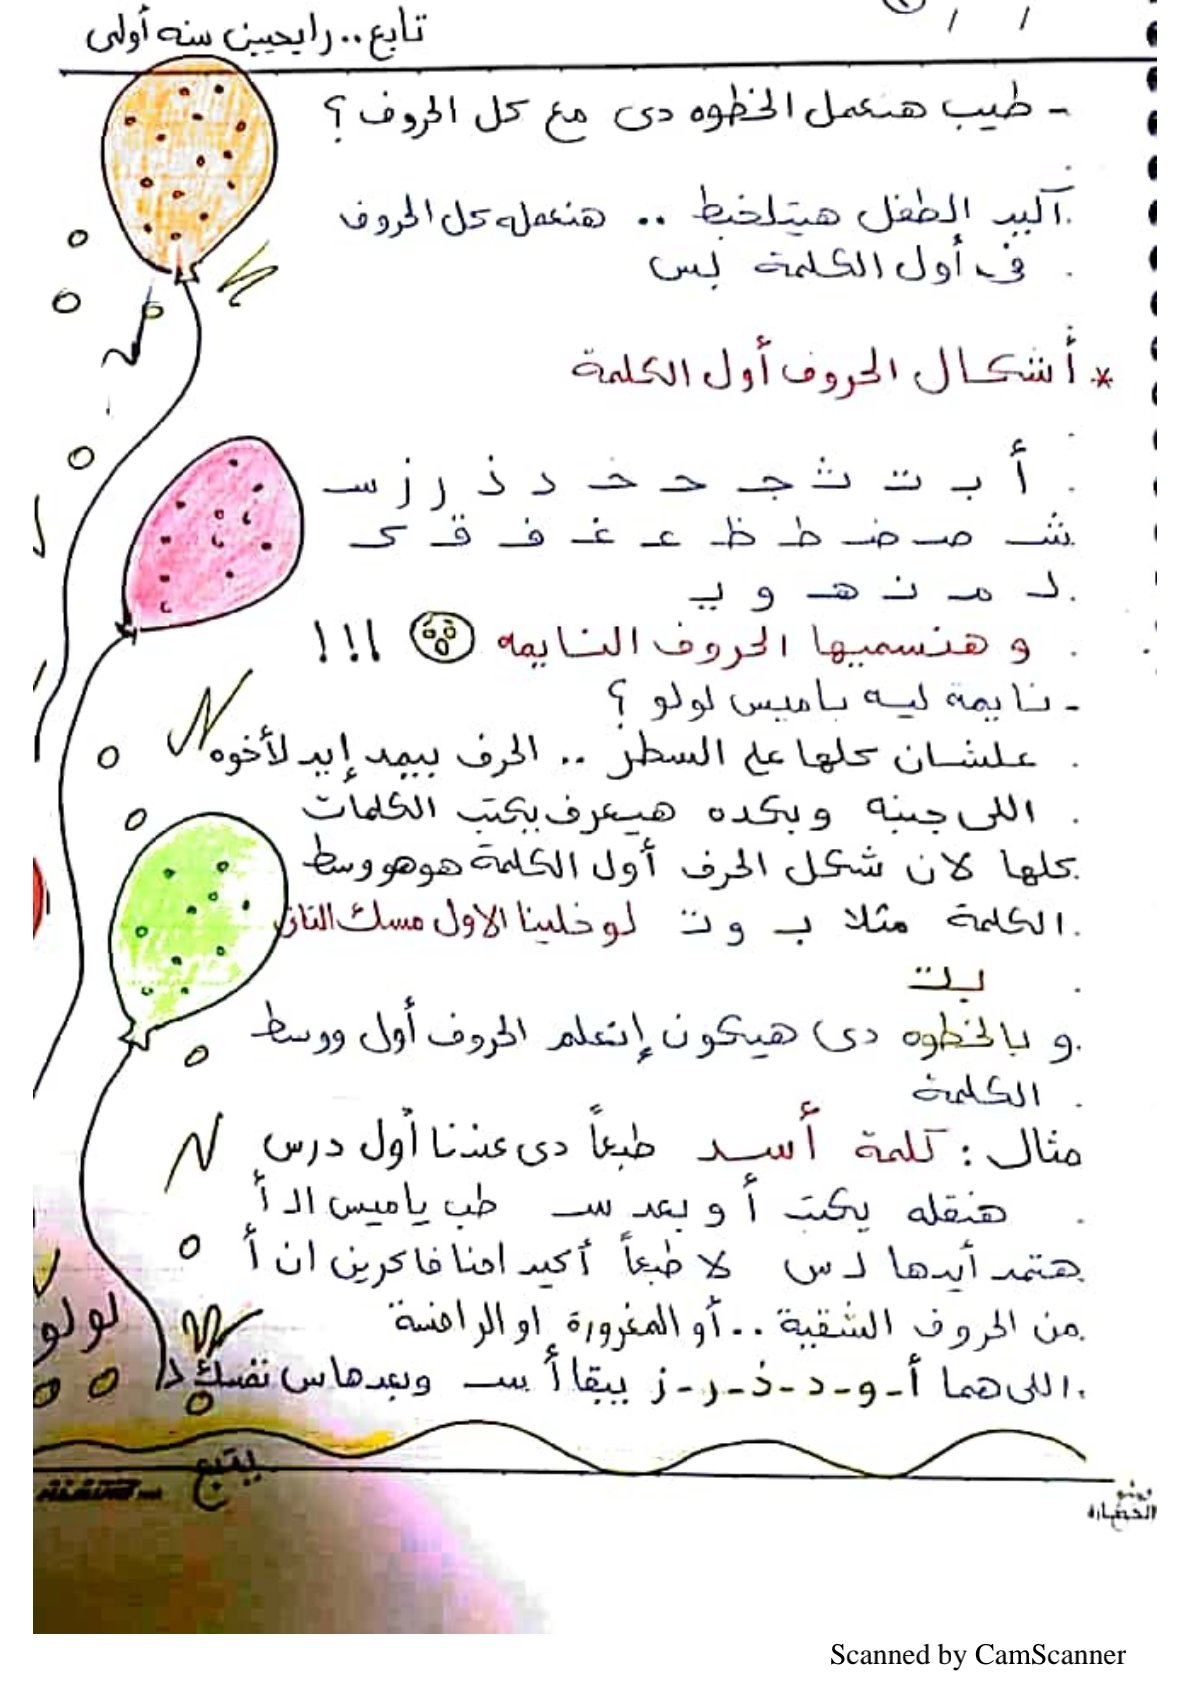 تابع.. رايحين سنه أولى
- طيب هنعمل الخطوه دى مع كل الحروف ؟
أكيد الطفل هيتلخبط .. هنعمله كل الحروف
فى أول الكلمة بس
* أشكال الحروف أول الكلمة
أ بـ تـ ثـ جـ حـ خـ د ذ ر ز سـ
شـ صـ ضـ ط ظ عـ غـ فـ قـ كـ
لـ مـ نـ هـ و يـ
و هنسميها الحروف النايمه !!!
- نايمة ليه ياميس لولو ؟
علشان كلها على السطر .. الحرف بيمد إيد لأخوه
اللى جنبه وبكده هيعرف يكتب الكلمات
كلها لان شكل الحرف أول الكلمة هو هو وسط
الكلمة مثلا بـ و تـ لو خلينا الاول مسك التانى
بتـ
و بالخطوه دى هيكون إتعلم الحروف أول ووسط
الكلمة
مثال : كلمة أسد طبعاً دى عندنا أول درس
هنقله يكتب أ و بعد سـ طب ياميس الـ أ
هتمد أيدها لـ س لا طبعاً أكيد احنا فاكرين ان أ
من الحروف الشقية .. أو المغرورة او الرافسة
اللى هما أ - و - د - ذ - ر - ز يبقا أ سـ وبعدها س تمسك د
لولو
يتبع
Scanned by CamScanner